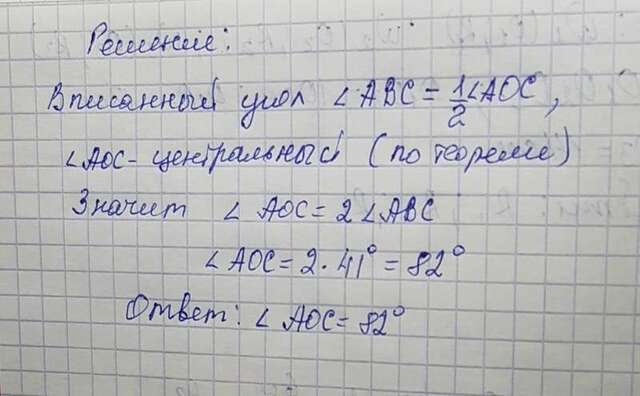 Решение:
Вписанный угол ∠ABC = 1/2 ∠AOC,
∠AOC - центральный (по теореме)
Значит ∠AOC = 2∠ABC
∠AOC = 2 · 41° = 82°
Ответ: ∠AOC = 82°